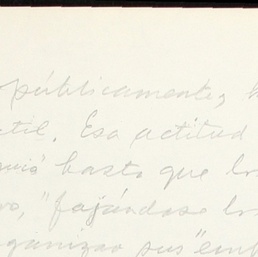 públicamente, h
til. Esa actitud
uió hasta que lo
vo, "fajándose lo
ganizar sus "emb